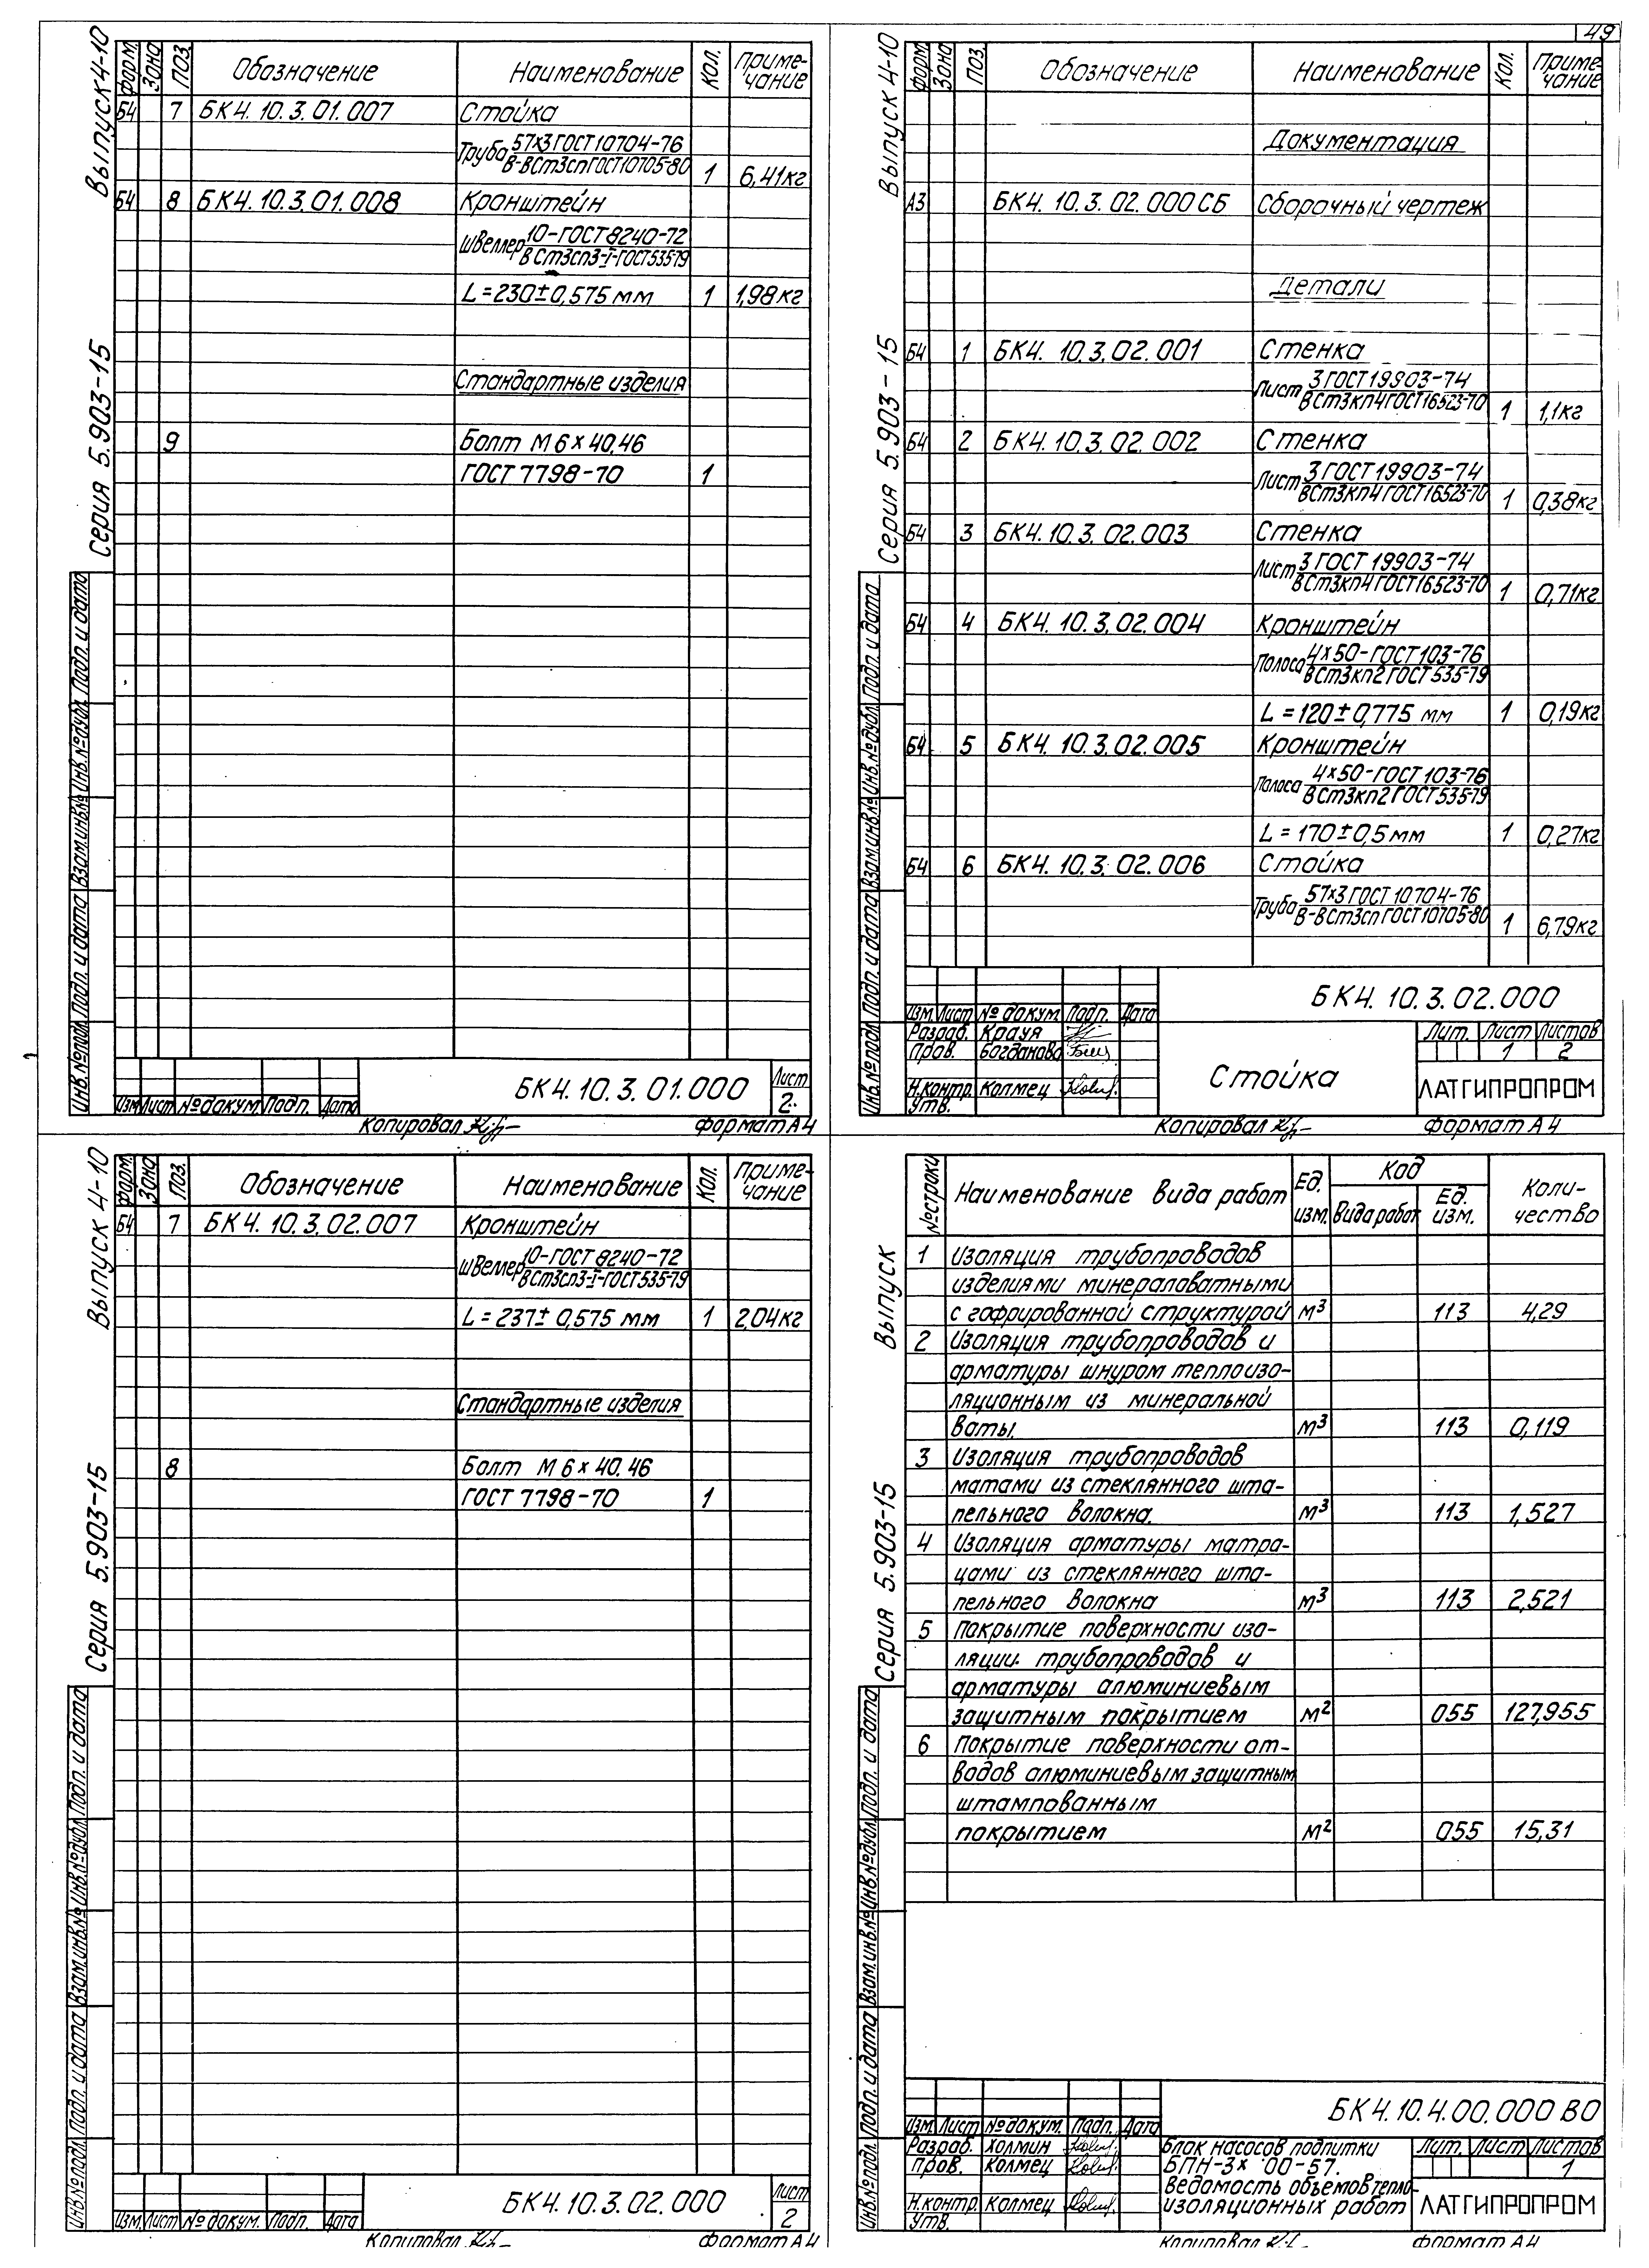 49
Выпуск 4-10
Серия 5.903-15
Форм. Зона Поз. Обозначение Наименование Кол. Приме-
чание
Б4 7 БК4.10.3.01.007 Стойка
Труба 57х3 ГОСТ 10704-76
В-ВСт3сп ГОСТ 10705-80 1 6,41кг
Б4 8 БК4.10.3.01.008 Кронштейн
Швеллер 10-ГОСТ 8240-72
ВСт3сп3-I-ГОСТ 535-79
L=230±0,575 мм 1 1,98кг
Стандартные изделия
9 Болт М6×40.46
ГОСТ 7798-70 1
Инв.№подл. Подп. и дата Взам.инв.№ Инв.№дубл. Подп. и дата
Изм Лист № докум. Подп. Дата
БК4.10.3.01.000
Лист
2
Копировал
Формат А4
Выпуск 4-10
Серия 5.903-15
Форм. Зона Поз. Обозначение Наименование Кол. Приме-
чание
Документация
А3 БК4.10.3.02.000СБ Сборочный чертеж
Детали
Б4 1 БК4.10.3.02.001 Стенка
Лист 3 ГОСТ 19903-74
ВСт3кп4 ГОСТ 16523-70 1 1,1кг
Б4 2 БК4.10.3.02.002 Стенка
Лист 3 ГОСТ 19903-74
ВСт3кп4 ГОСТ 16523-70 1 0,38кг
Б4 3 БК4.10.3.02.003 Стенка
Лист 3 ГОСТ 19903-74
ВСт3кп4 ГОСТ 16523-70 1 0,71кг
Б4 4 БК4.10.3.02.004 Кронштейн
Полоса 4×50-ГОСТ 103-76
ВСт3кп2 ГОСТ 535-79
L=120±0,775 мм 1 0,19кг
Б4 5 БК4.10.3.02.005 Кронштейн
Полоса 4×50-ГОСТ 103-76
ВСт3кп2 ГОСТ 535-79
L=170±0,5мм 1 0,27кг
Б4 6 БК4.10.3.02.006 Стойка
Труба 57х3 ГОСТ 10704-76
В-ВСт3сп ГОСТ 10705-80 1 6,79кг
Инв.№подл. Подп. и дата Взам.инв.№ Инв.№дубл. Подп. и дата
БК4.10.3.02.000
Изм. Лист № докум. Подп. Дата
Разраб. Крауя
Пров. Богданова
Н.контр. Колмец
Утв.
Стойка
Лит. Лист Листов
1 2
ЛАТГИПРОПРОМ
Копировал
Формат А4
Выпуск 4-10
Серия 5.903-15
Форм. Зона Поз. Обозначение Наименование Кол. Приме-
чание
Б4 7 БК4.10.3.02.007 Кронштейн
Швеллер 10-ГОСТ 8240-72
ВСт3сп3-I-ГОСТ 535-79
L=237±0,575 мм 1 2,04кг
Стандартные изделия
8 Болт М6×40.46
ГОСТ 7798-70 1
Инв.№подл. Подп. и дата Взам.инв.№ Инв.№дубл. Подп. и дата
Изм. Лист № докум. Подп. Дата
БК4.10.3.02.000
Лист
2
Копировал
Формат А4
Выпуск
Серия 5.903-15
№строки Наименование вида работ Ед.
изм. Код
Вида работ Ед.
изм. Коли-
чество
1 Изоляция трубопроводов
изделиями минераловатными
с гофрированной структурой м³ 113 4,29
2 Изоляция трубопроводов и
арматуры шнуром теплоизо-
ляционным из минеральной
ваты. м³ 113 0,119
3 Изоляция трубопроводов
матами из стеклянного шта-
пельного волокна. м³ 113 1,527
4 Изоляция арматуры матра-
цами из стеклянного шта-
пельного волокна м³ 113 2,521
5 Покрытие поверхности изо-
ляции трубопроводов и
арматуры алюминиевым
защитным покрытием м² 055 127,955
6 Покрытие поверхности от-
водов алюминиевым защитным
штампованным
покрытием м² 055 15,31
Инв.№подл. Подп. и дата Взам.инв.№ Инв.№дубл. Подп. и дата
БК4.10.4.00.000 ВО
Изм. Лист № докум. Подп. Дата
Разраб. Холмин
Пров. Колмец
Н.контр. Колмец
Утв.
Блок насосов подпитки
БПН-3× 00-57.
Ведомость объемов тепло-
изоляционных работ
Лит. Лист Листов
1
ЛАТГИПРОПРОМ
Копировал
Формат А4